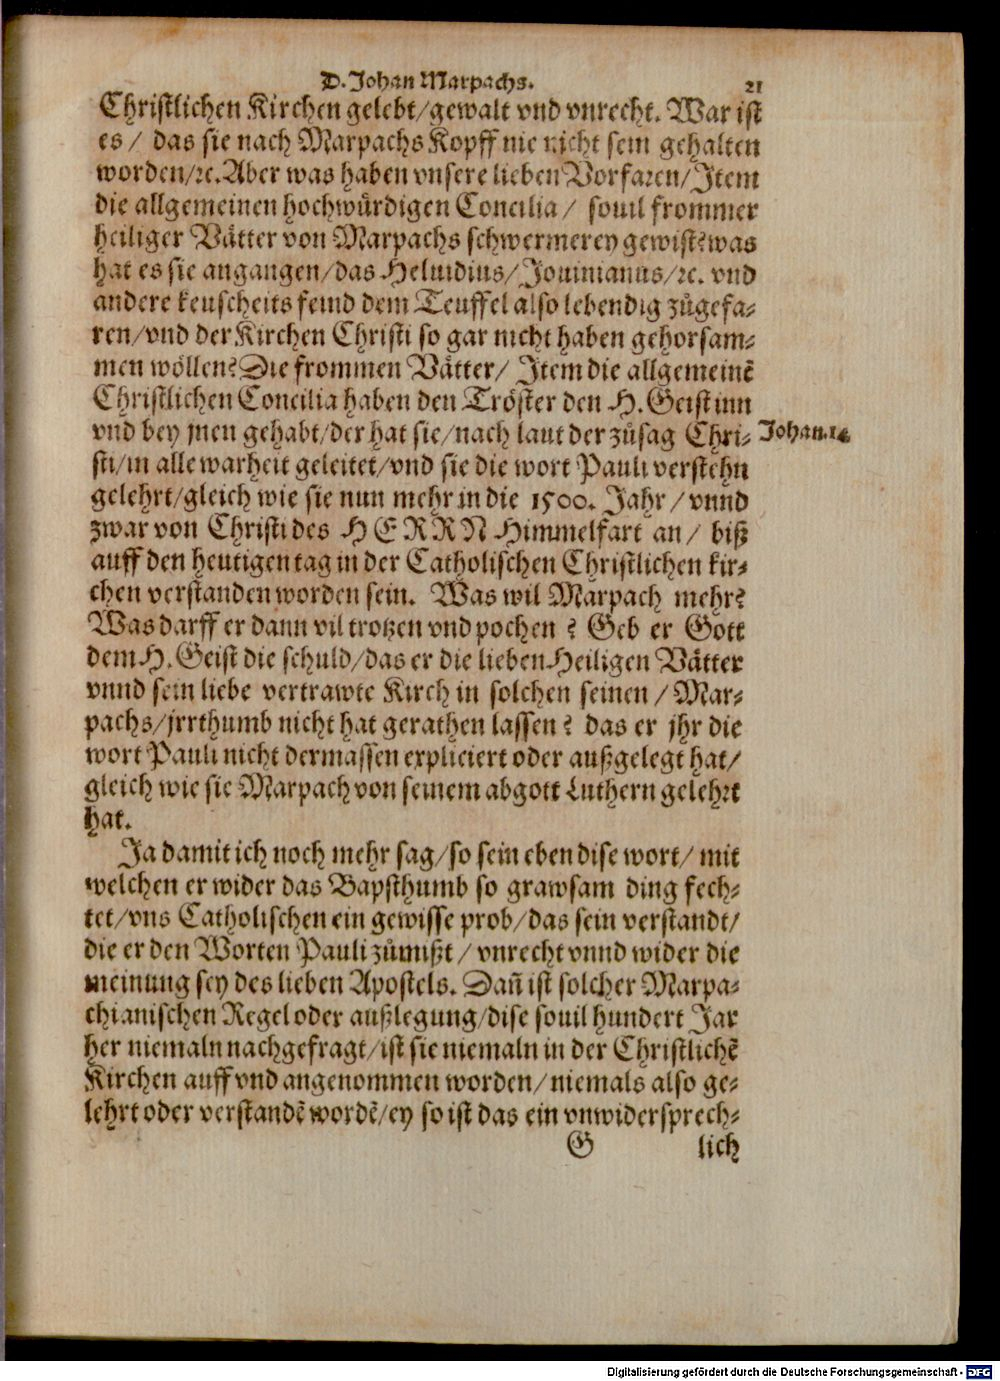 D. Johan Marpachs. 21
Christlichen Kirchen gelebt/gewalt vnd vnrecht. War ist
es/ das sie nach Marpachs Kopff nie nicht sein gehalten
worden/ꝛc. Aber was haben vnsere lieben Vorfaren/Item
die allgemeinen hochwürdigen Concilia/ souil frommer
heiliger Vätter von Marpachs schwermerey gewist? was
hat es sie angangen/das Heluidius/Jouinianus/ꝛc. vnd
andere keuscheits feind dem Teuffel also lebendig zůgefa-
ren/vnd der Kirchen Christi so gar nicht haben gehorsam-
men wöllen? Die frommen Vätter/ Item die allgemeinē
Christlichen Concilia haben den Tröster den H. Geist inn
vnd bey jnen gehabt/der hat sie/nach laut der zůsag Chri- Johan. 14.
sti/in alle warheit geleitet/vnd sie die wort Pauli verstehn
gelehrt/gleich wie sie nun mehr in die 1500. Jahr/vnnd
zwar von Christi des HERRN Himmelfart an/ biß
auff den heutigen tag in der Catholischen Christlichen kir-
chen verstanden worden sein. Was wil Marpach mehr?
Was darff er dann vil trotzen vnd pochen? Geb er Gott
dem H. Geist die schuld/das er die lieben Heiligen Vätter
vnnd sein liebe vertrawte Kirch in solchen seinen/ Mar-
pachs/jrrthumb nicht hat gerathen lassen? das er jhr die
wort Pauli nicht dermassen expliciert oder außgelegt hat/
gleich wie sie Marpach von seinem abgott Luthern gelehrt
hat.
Ja damit ich noch mehr sag/so sein eben dise wort/ mit
welchen er wider das Bapsthumb so grawsam ding fech-
tet/vns Catholischen ein gewisse prob/das sein verstandt/
die er den Worten Pauli zůmißt/ vnrecht vnnd wider die
meinung sey des lieben Apostels. Dañ ist solcher Marpa-
chianischen Regel oder außlegung/dise souil hundert Jar
her niemaln nachgefragt/ist sie niemaln in der Christlichē
Kirchen auff vnd angenommen worden/niemals also ge-
lehrt oder verstandē wordē/ey so ist das ein vnwidersprech-
G lich
Digitalisierung gefördert durch die Deutsche Forschungsgemeinschaft - DFG